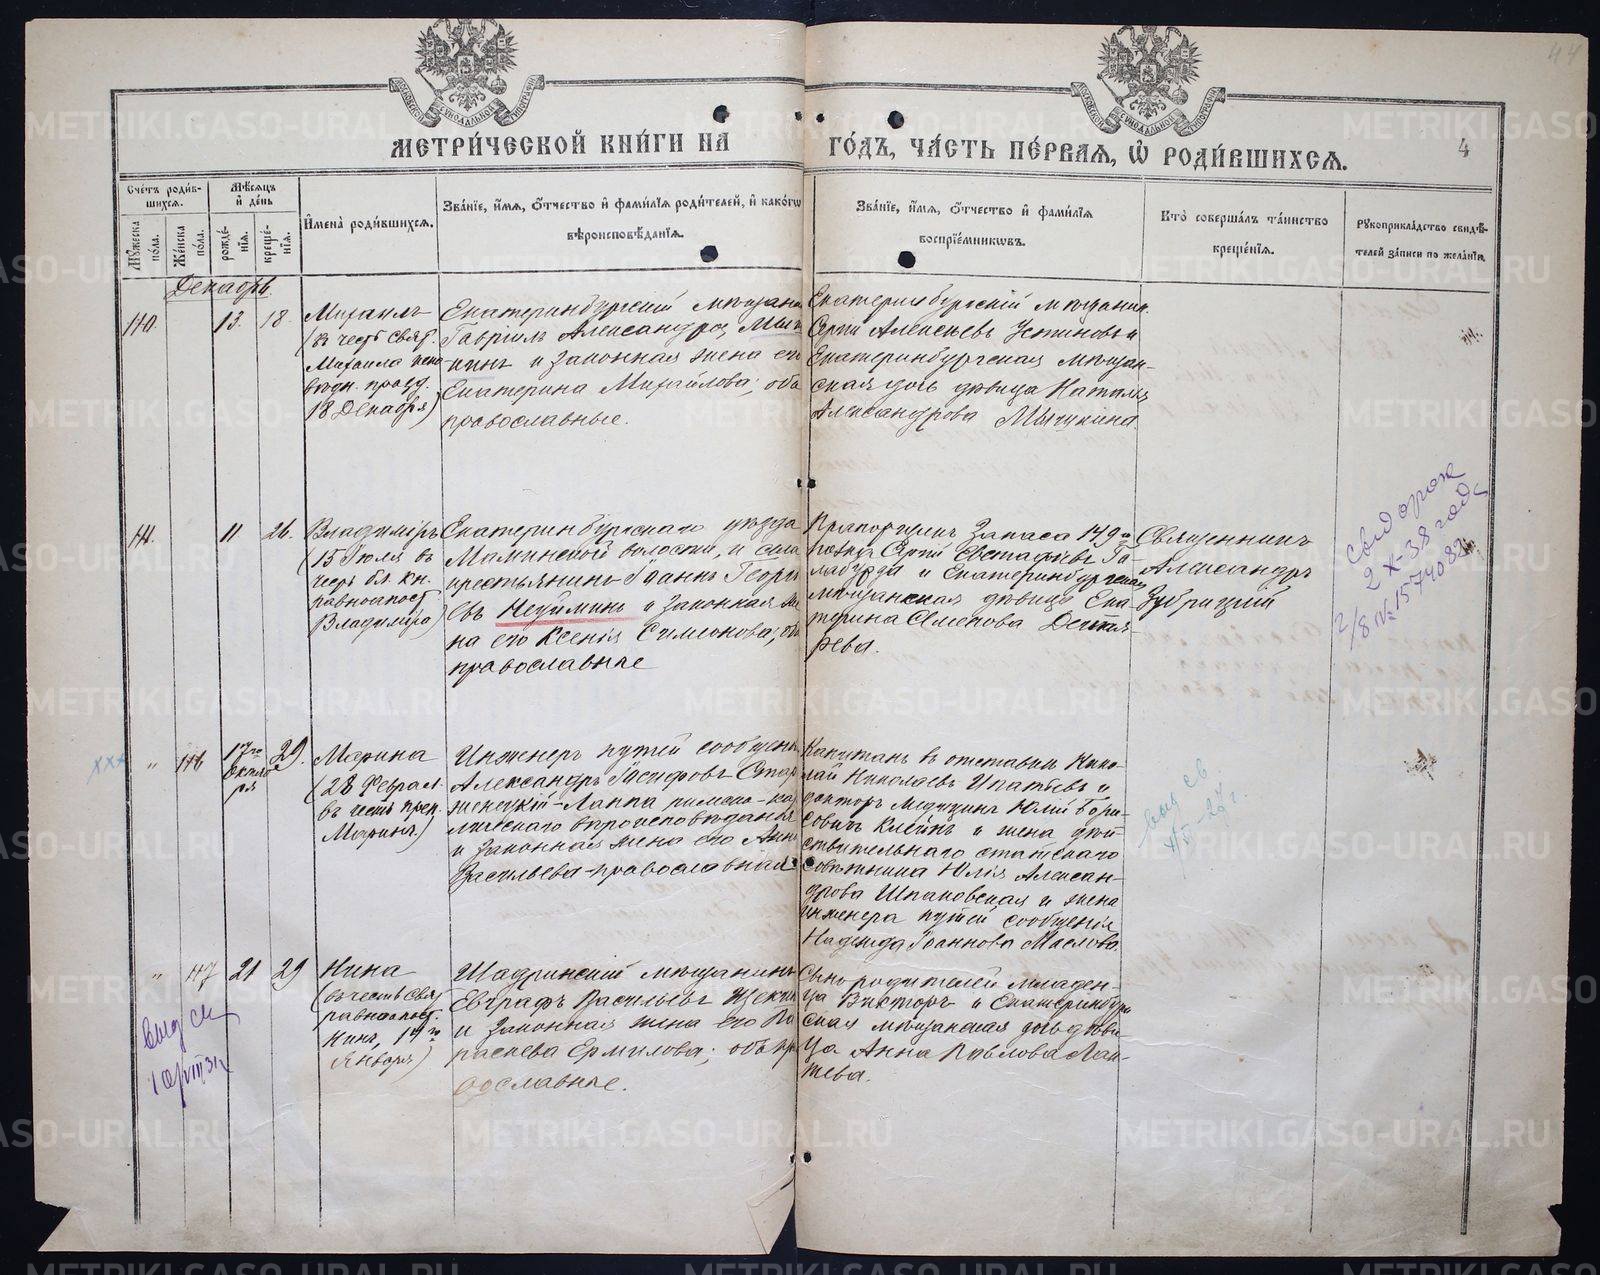 МЕТРИ́ЧЕСКОЙ КНИ́ГИ НА ГО́ДЪ, ЧА́СТЬ ПЕ́РВАЯ, Ѽ РОДИ́ВШИХСЯ.
44
4
Сче́тъ роди́в-
шихся.
Мѣ́сяцъ
и́ де́нь
Му́жеска
по́ла.
Же́нска
по́ла.
рожде́-
нїя.
креще́-
нїя.
И҆мена̀ роди́вшихся.
Зва́нїе, и҆́мя, ѻ҆́тчество и҆ фами́лїя роди́телей, и҆ како́гѡ
вѣроисповѣ́данїя.
Зва́нїе, и҆́мя, ѻ҆́тчество и҆ фами́лїя
воспрїе́мникѡвъ.
Кто̀ соверша́лъ та́инство
креще́нїя.
Рукоприкла́дство свидѣ́-
телей за́писи по жела́нїю.
Декабрь
110.
13.
18.
Михаилъ
(въ честь свят.
Михаила
праздн.
18 Декабря)
Екатеринбургскій мѣщани
Гавріилъ Александровъ
и законная жена его
Екатерина Михайлова; оба
православные.
Екатеринбургскій мѣщанин
Сергій Алексѣевъ Устиновъ и
Екатеринбургская мѣщан-
ская дочь дѣвица Наталія
Александрова Мычкина.
111.
11
26.
Владиміръ
(15 Іюля въ
честь бл. кн.
равноапост.
Владиміра)
Екатеринбургскаго уѣзда
Маминской волости, и села
крестьянинъ Іоаннъ Георгі
евъ Неуйминъ и законная же
на его Ксенія Симеонова; оба
православные
Прапорщикъ Запаса 149го
полка Сергій Евстафіевъ Га-
лабурда и Екатеринбургская
мѣщанская дѣвица Ека-
терина Семенова Дегтя-
рева.
Священникъ
Александръ
Зубрицкій
свид о рож
2 X-38 года
2/8 № 1574082
ххх
"
116
17го
Октяб
ря
29.
Марина
(28 Феврал.
въ честь преп.
Марины)
Инженеръ путей сообщені
Александръ Іосифовъ Стар
женецкій-Лаппа римско-ка
лическаго вѣроисповѣданія
и законная жена его Анна
Васильева-православная
Капитанъ въ отставкѣ Нико-
лай Николаевъ Ипатьевъ и
докторъ медицины Юлій Бори-
совичъ Клейнъ и жена дѣй-
ствительнаго статскаго
совѣтника Юлія Алексан-
дрова Шпаковская и жена
инженера путей сообщенія
Надежда Іоаннова Маслова.
выд св
"
117
21
29
Нина
(въ честь свя
равноапост.
Нины, 14го
Января)
Шадринскій мѣщанинъ
Евграфъ Васильевъ Щекин
и законная жена его Па
раскева Ермилова; оба пр
вославные.
Сынъ родителей младен-
ца Викторъ и Екатеринбург
ская мѣщанская дочь дѣви-
ца Анна Павлова Лап-
тева.
выд св
METRIKI.GASO-URAL.RU